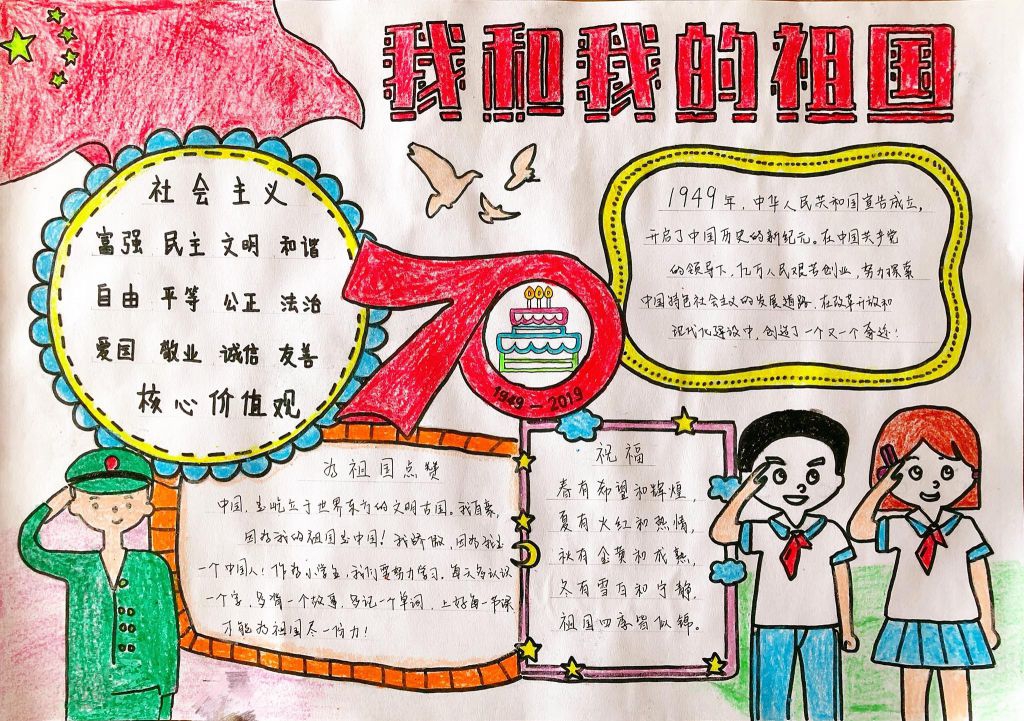 我和我的祖国
社会主义
富强 民主 文明 和谐
自由 平等 公正 法治
爱国 敬业 诚信 友善
核心价值观
70
1949-2019
1949年，中华人民共和国宣告成立，
开启了中国历史的新纪元。在中国共产党
的领导下，亿万人民艰苦创业，努力探索
中国特色社会主义的发展道路，在改革开放和
现代化建设中，创造了一个又一个奇迹！
为祖国点赞
中国，是屹立于世界东方的文明古国。我自豪，
因为我的祖国是中国！我骄傲，因为我是
一个中国人！作为小学生，我们要努力学习。每天多认识
一个字，多背一个故事，多记一个单词，上好每一节课
才能为祖国尽一份力！
祝福
春有希望和辉煌，
夏有火红和热情，
秋有金黄和成熟，
冬有雪白和宁静，
祖国四季皆似锦。